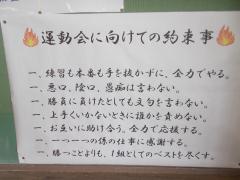 運動会に向けての約束事
一、練習も本番も手を抜かずに、全力でやる。
一、悪口、陰口、愚痴は言わない。
一、勝負に負けたとしても文句を言わない。
一、上手くいかないときに誰かを責めない。
一、お互いに助け合う。全力で応援する。
一、一つ一つの係の仕事に感謝する。
一、勝つことよりも、1組としてのベストを尽くす。